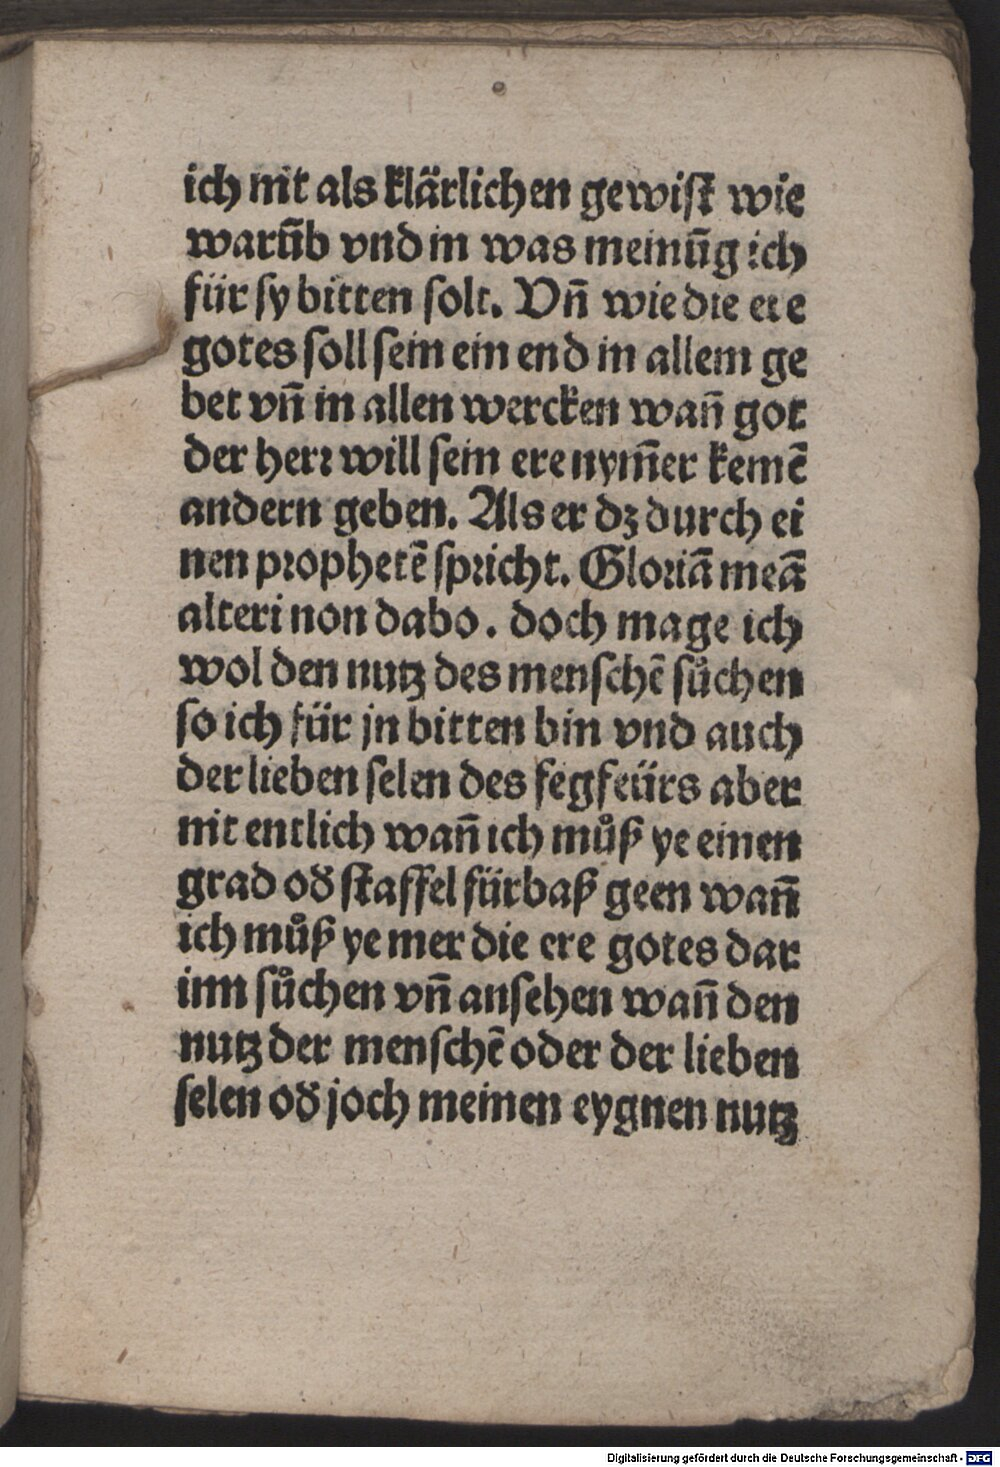 ich nit als klärlichen gewiſt wie
warūb vnd in was meinūg ich
für ſy bitten ſolt. Vn̄ wie die ere
gotes ſoll ſein ein end in allem ge
bet vn̄ in allen wercken wan̄ got
der herꝛ will ſein ere nym̄er keinē
andern geben. Als er dz durch ei
nen prophetē ſpricht. Gloriā meā
alteri non dabo. doch mage ich
wol den nutz des menſchē ſůchen
ſo ich für jn bitten bin vnd auch
der lieben ſelen des fegfeürs aber
nit entlich wan̄ ich můß ye einen
grad od̕ ſtaffel fürbaß geen wan̄
ich můß ye mer die ere gotes dar
inn ſůchen vn̄ anſehen wan̄ den
nutz der menſchē oder der lieben
ſelen od̕ joch meinen eygnen nutz
Digitalisierung gefördert durch die Deutsche Forschungsgemeinschaft - DFG